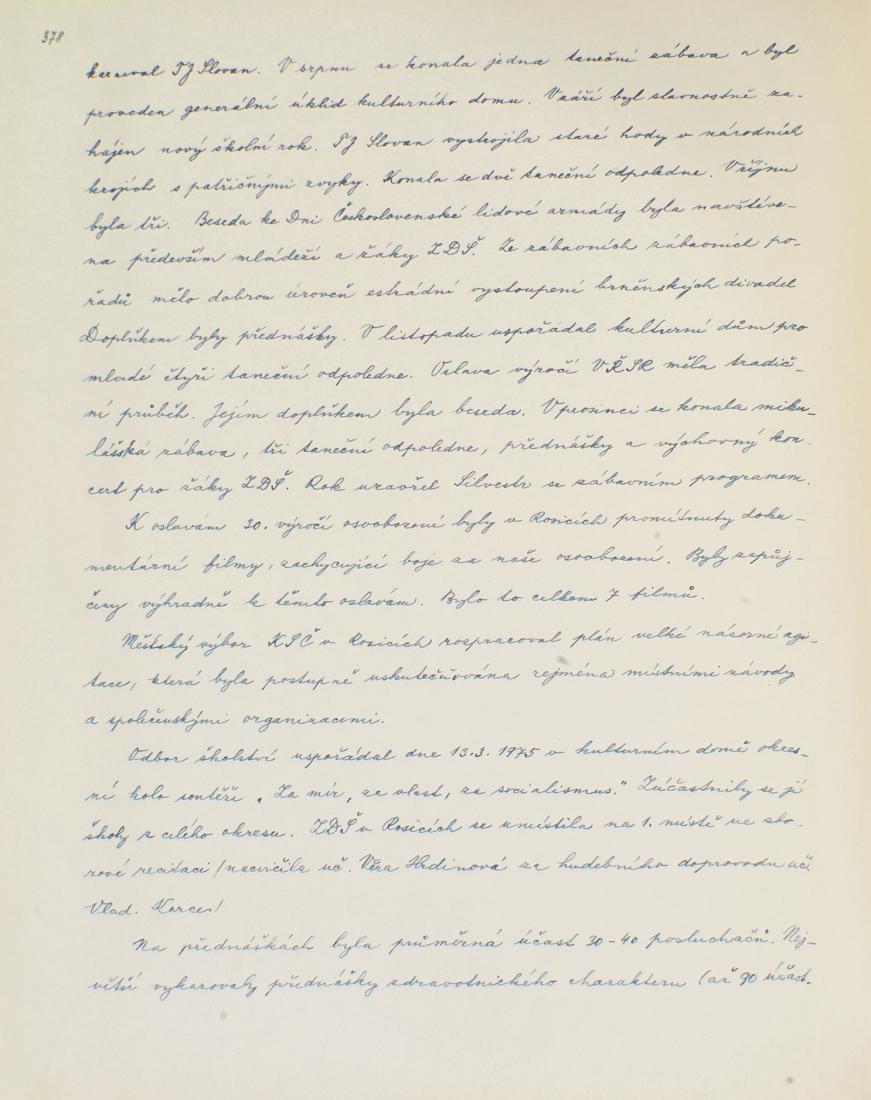 378
karneval TJ Slovan. V srpnu se konala jedna taneční zábava a byl
proveden generální úklid kulturního domu. V září byl slavnostně za-
hájen nový školní rok. TJ Slovan vystrojila staré hody v národních
krojích s patřičnými zvyky. Konala se dvě taneční odpoledne. V říjnu
byla tři. Beseda ke Dni Československé lidové armády byla navštíve-
na především mládeží a žáky ZDŠ. Ze zábavních zábavních po-
řadů mělo dobrou úroveň estrádní vystoupení brněnských divadel
Doplňkem byly přednášky. V listopadu uspořádal kulturní dům pro
mladé čtyři taneční odpoledne. Oslava výročí VŘSR měla tradič-
ní průběh. Jejím doplňkem byla beseda. V prosinci se konala miku-
lášská zábava, tři taneční odpoledne, přednášky a výchovný kon-
cert pro žáky ZDŠ. Rok uzavřel Silvestr se zábavním programem.
K oslavám 30. výročí osvobození byly v Rosicích promítnuty doku-
mentární filmy, zachycující boje za naše osvobození. Byly zapůj-
čeny výhradně k těmto oslavám. Bylo to celkem 7 filmů.
Městský výbor KSČ v Rosicích rozpracoval plán velké názorné agi-
tace, která byla postupně uskutečňována zejména místními závody
a společenskými organizacemi.
Odbor školství uspořádal dne 13.3. 1975 v kulturním domě okres-
ní kolo soutěže „Za mír, za vlast, za socialismus." Zúčastnily se jí
školy z celého okresu. ZDŠ v Rosicích se umístila na 1. místě ve sbo-
rové recitaci /nacvičila uč. Věra Hrdinová za hudebního doprovodu uč.
Vlad. Karce./
Na přednáškách byla průměrná účast 30-40 posluchačů. Nej-
větší vykazovaly přednášky zdravotnického charakteru (až 90 účast-